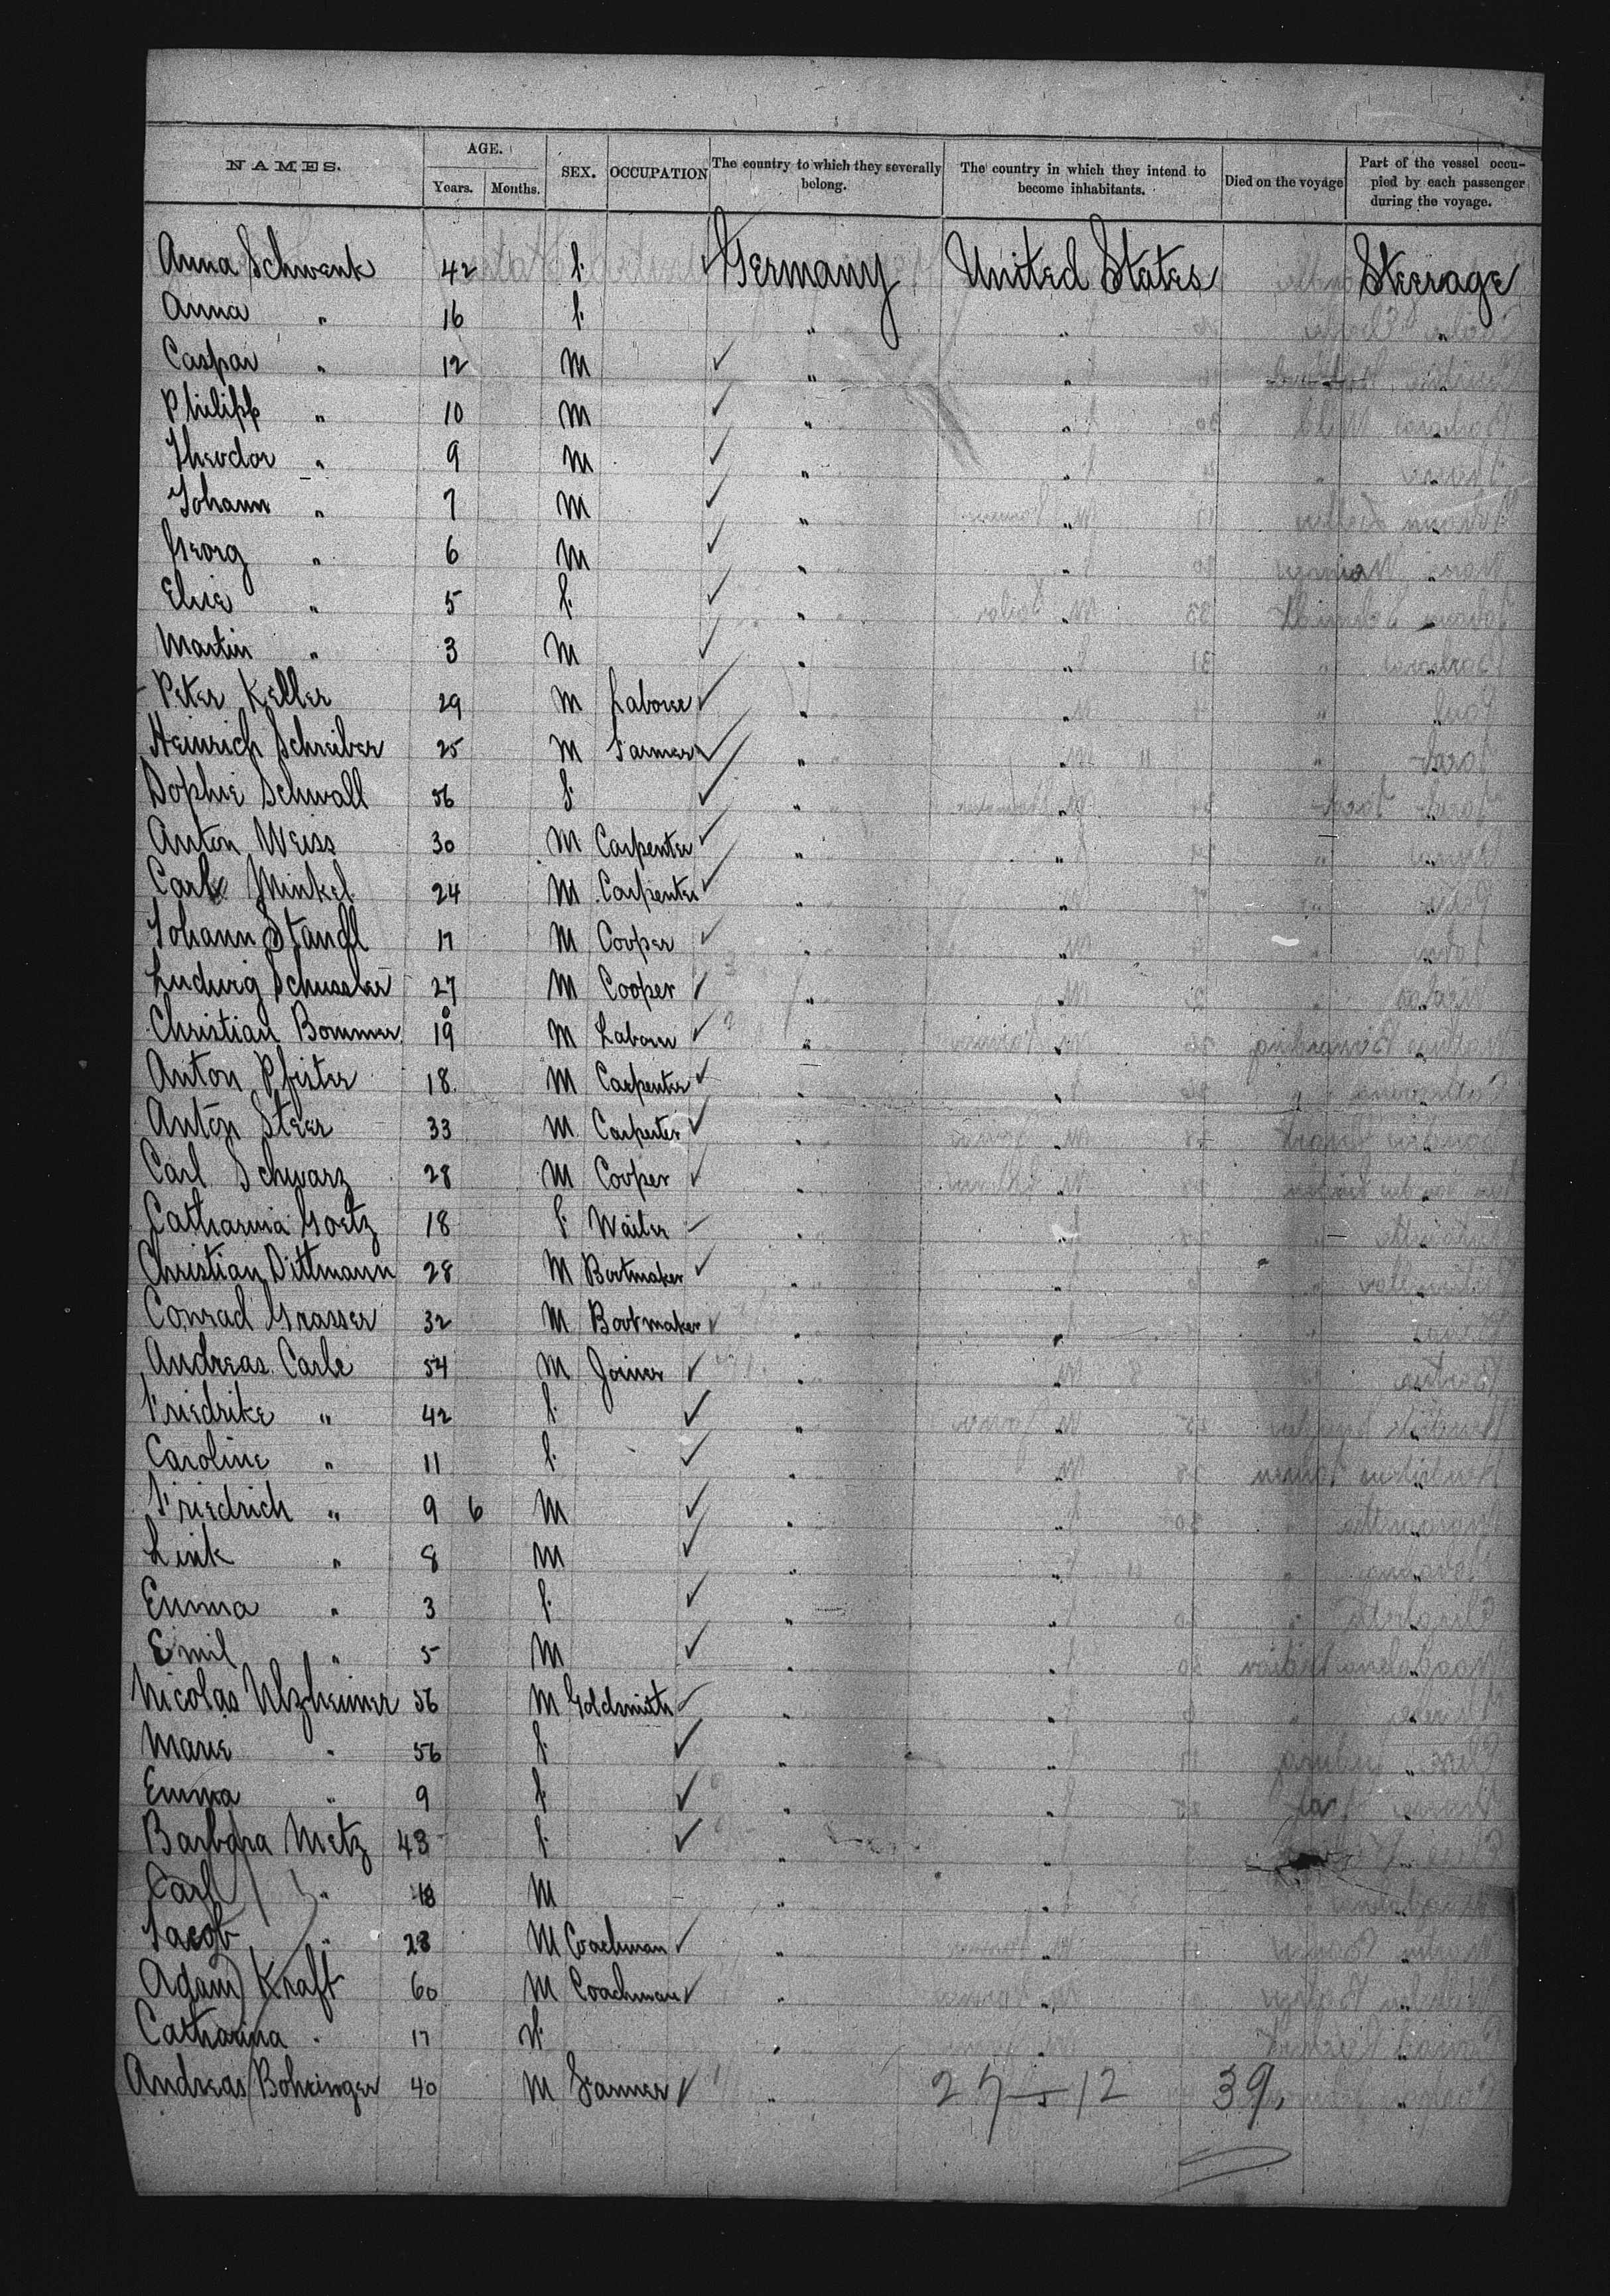 NAMES. AGE. Years. Months. SEX. OCCUPATION The country to which they severally belong. The country in which they intend to become inhabitants. Died on the voyage Part of the vessel occupied by each passenger during the voyage.
Anna Schwenk 42 f. Germany United States Steerage
Anna " 16 f. " " "
Caspar " 12 M " " "
Philipp " 10 M " " "
Theodor " 9 M " " "
Johann " 7 M " " "
Georg " 6 M " " "
Elise " 5 f. " " "
Martin " 3 M " " "
Peter Keller 29 M Laborer " " "
Heinrich Schreiber 25 M Farmer " " "
Sophie Schwall 56 f. " " "
Anton Weiss 30 M Carpenter " " "
Carl Minkel 24 M Carpenter " " "
Johann Standl 17 M Cooper " " "
Ludwig Schussler 27 M Cooper " " "
Christian Bommer 19 M Laborer " " "
Anton Pfister 18 M Carpenter " " "
Anton Steer 33 M Carpenter " " "
Carl Schwarz 28 M Cooper " " "
Catharina Goetz 18 f. Waiter " " "
Christian Dittmann 28 M Bootmaker " " "
Conrad Grasser 32 M Bootmaker " " "
Andreas Carle 54 M Joiner " " "
Friedrike " 42 f. " " "
Caroline " 11 f. " " "
Friedrich " 9 6 M " " "
Link " 8 M " " "
Emma " 3 f. " " "
Emil " 5 M " " "
Nicolas Ulzheimer 56 M Goldsmith " " "
Marie " 56 f. " " "
Emma " 9 f. " " "
Barbara Metz 43 f. " " "
Carl " 18 M " " "
Jacob " 28 M Coachman " " "
Adam Kraft 60 M Coachman " " "
Catharina " 17 f. " " "
Andreas Bohringer 40 M Farmer " 27 — 12 39 "